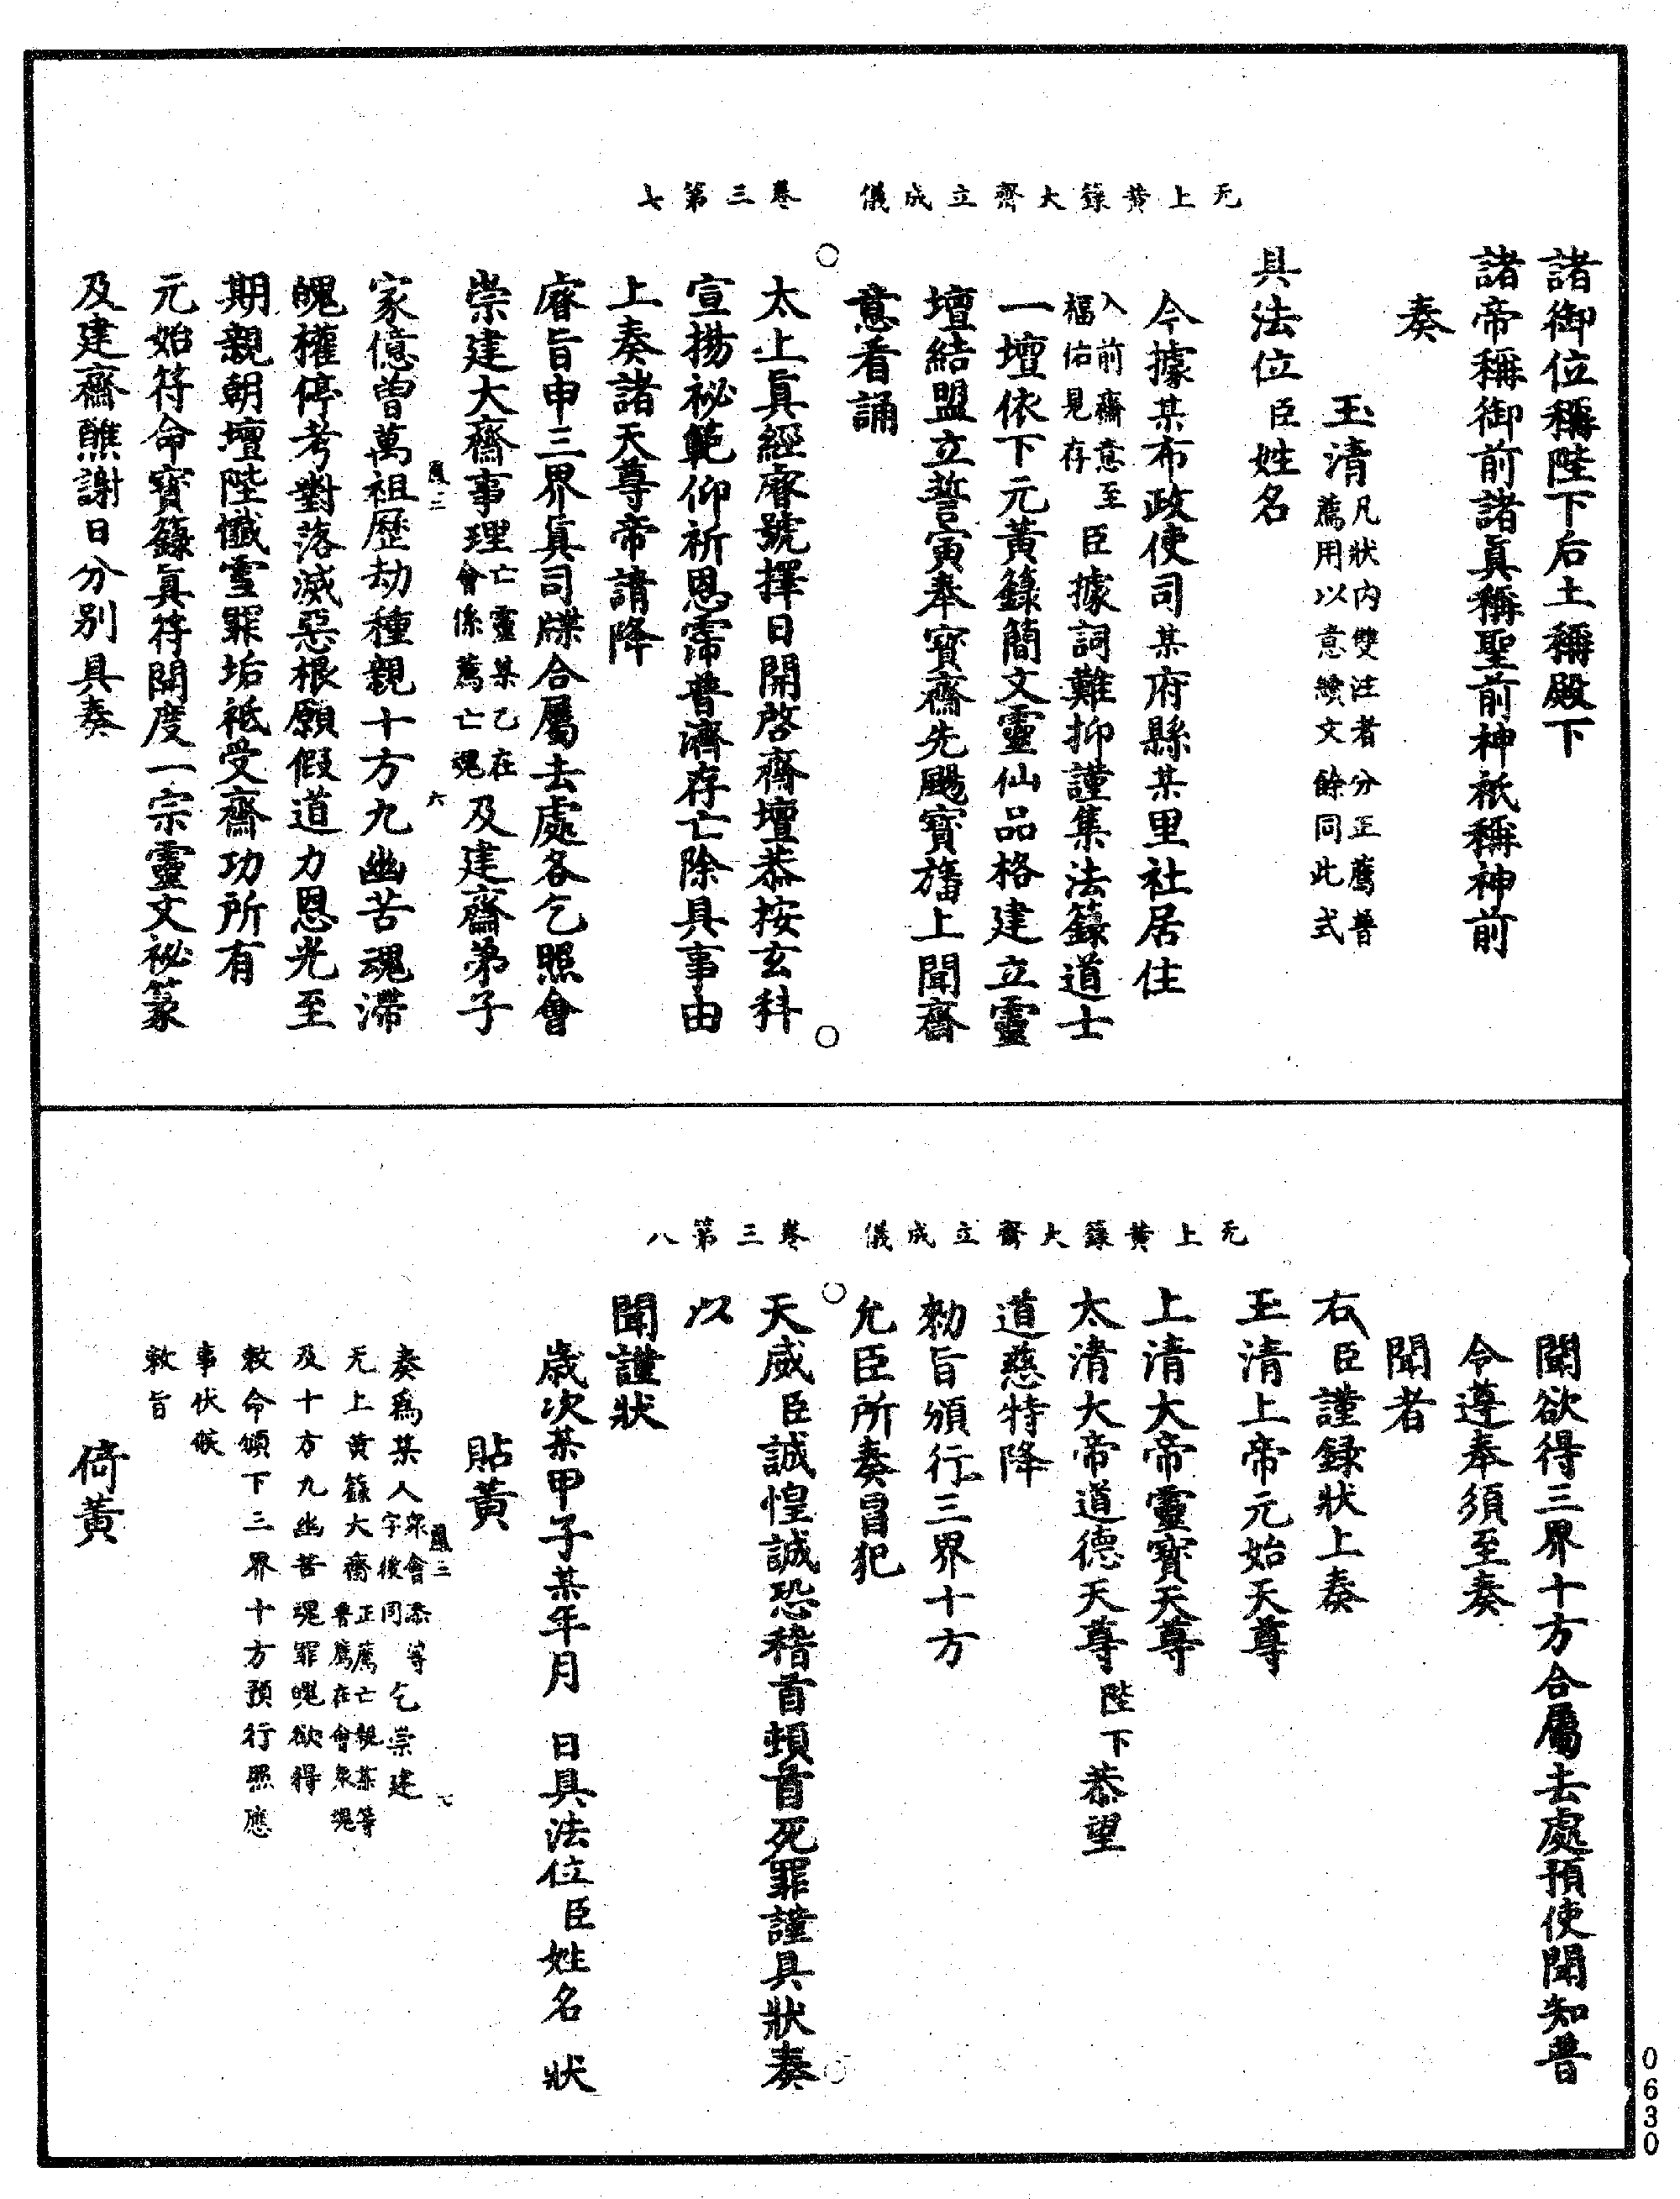 无上黃籙大齋立成儀　卷三第七
諸御位稱陛下后土稱殿下
諸帝稱御前諸眞稱聖前神祇稱神前
奏
玉清凡狀內雙注者分正薦普
薦用以意續文餘同此式
具法位臣姓名
今據某布政使司某府縣某里社居住
入前齋意至
福佑見存
臣據詞難抑謹集法籙道士
一壇依下元黃籙簡文靈仙品格建立靈
壇結盟立誓寅奉寶齋先颺寶旛上聞齋
意看誦
太上眞經睿號擇日開啓齋壇恭按玄科
宣揚祕範仰祈恩霈普濟存亡除具事由
上奏諸天尊帝請降
睿旨申三界眞司牒合屬去處各乞照會
崇建大齋事理亡靈某乙在
會係薦亡魂
及建齋弟子
鳳三　六
家億曾萬祖歷劫種親十方九幽苦魂滯
魄權停考對落滅惡根願假道力恩光至
期親朝壇陛懺雪罪垢祗受齋功所有
元始符命寶籙眞符開度一宗靈文祕篆
及建齋醮謝日分別具奏
无上黃籙大齋立成儀　卷三第八
聞欲得三界十方合屬去處預使聞知普
令遵奉須至奏
聞者
右臣謹錄狀上奏
玉清上帝元始天尊
上清大帝靈寶天尊
太清大帝道德天尊陛下恭望
道慈特降
勑旨頒行三界十方
允臣所奏冒犯
天威臣誠惶誠恐稽首頓首死罪謹具狀奏
以
聞謹狀
歲次某甲子某年月　日具法位臣姓名　狀
貼黃
鳳三　七
奏爲某人衆會添等
字後同
乞崇建
无上黃籙大齋正薦亡親某等
普薦在會衆魂
及十方九幽苦魂罪魄欲得
敕命頒下三界十方預行照應
事伏候
敕旨
倚黃
0630